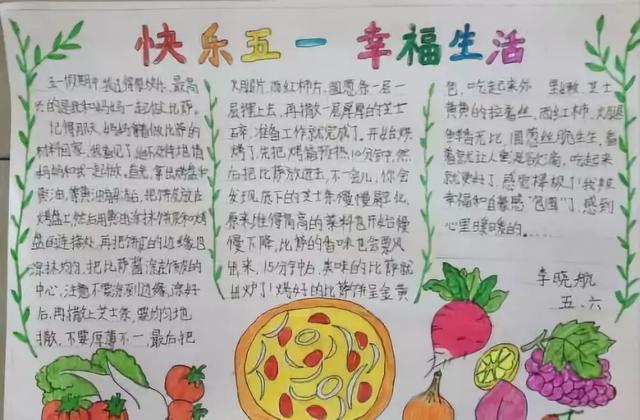 快乐五一 幸福生活
五一假期中,我过得很快乐,最高
兴的是我和妈妈一起做比萨。
记得那天,妈妈拿着做比萨的
材料回家,我看见了,迫不及待地请
妈妈和我一起做。首先,拿出烤盘和
黄油,等黄油融活后,把饼皮放在
烤盘上,然后用黄油涂抹饼皮和烤
盘的连接处,再把饼皮的边缘也
涂抹均匀。把比萨酱涂在饼皮的
中心,注意不要涂到边缘,涂好
后,再撒上芝士条,要均匀地
撒,不要厚薄不一,最后把
火腿片、西红柿片、圆葱条一层一
层摆上去,再撒一层厚厚的芝士
碎,准备工作就完成了,开始烘
烤了。先把烤箱预热10分钟,然
后把比萨放进去,不一会儿,你会
发现,底下的芝士条慢慢融化,
原来堆得高高的菜料也开始慢
慢下降,比萨的香味也会飘风
出来,15分钟后,美味的比萨就
出炉了!烤好的比萨饼呈金黄
色,吃起来外 里嫩,芝士
黄黄的拉着丝,西红柿、火腿
鲜香无比,圆葱丝脆生生,看
着就让人垂涎欲滴,吃起来
就更好了,感觉棒极了!我被
幸福和自豪感“包围”了,感到
心里暖暖的。……
李晓航
五、六